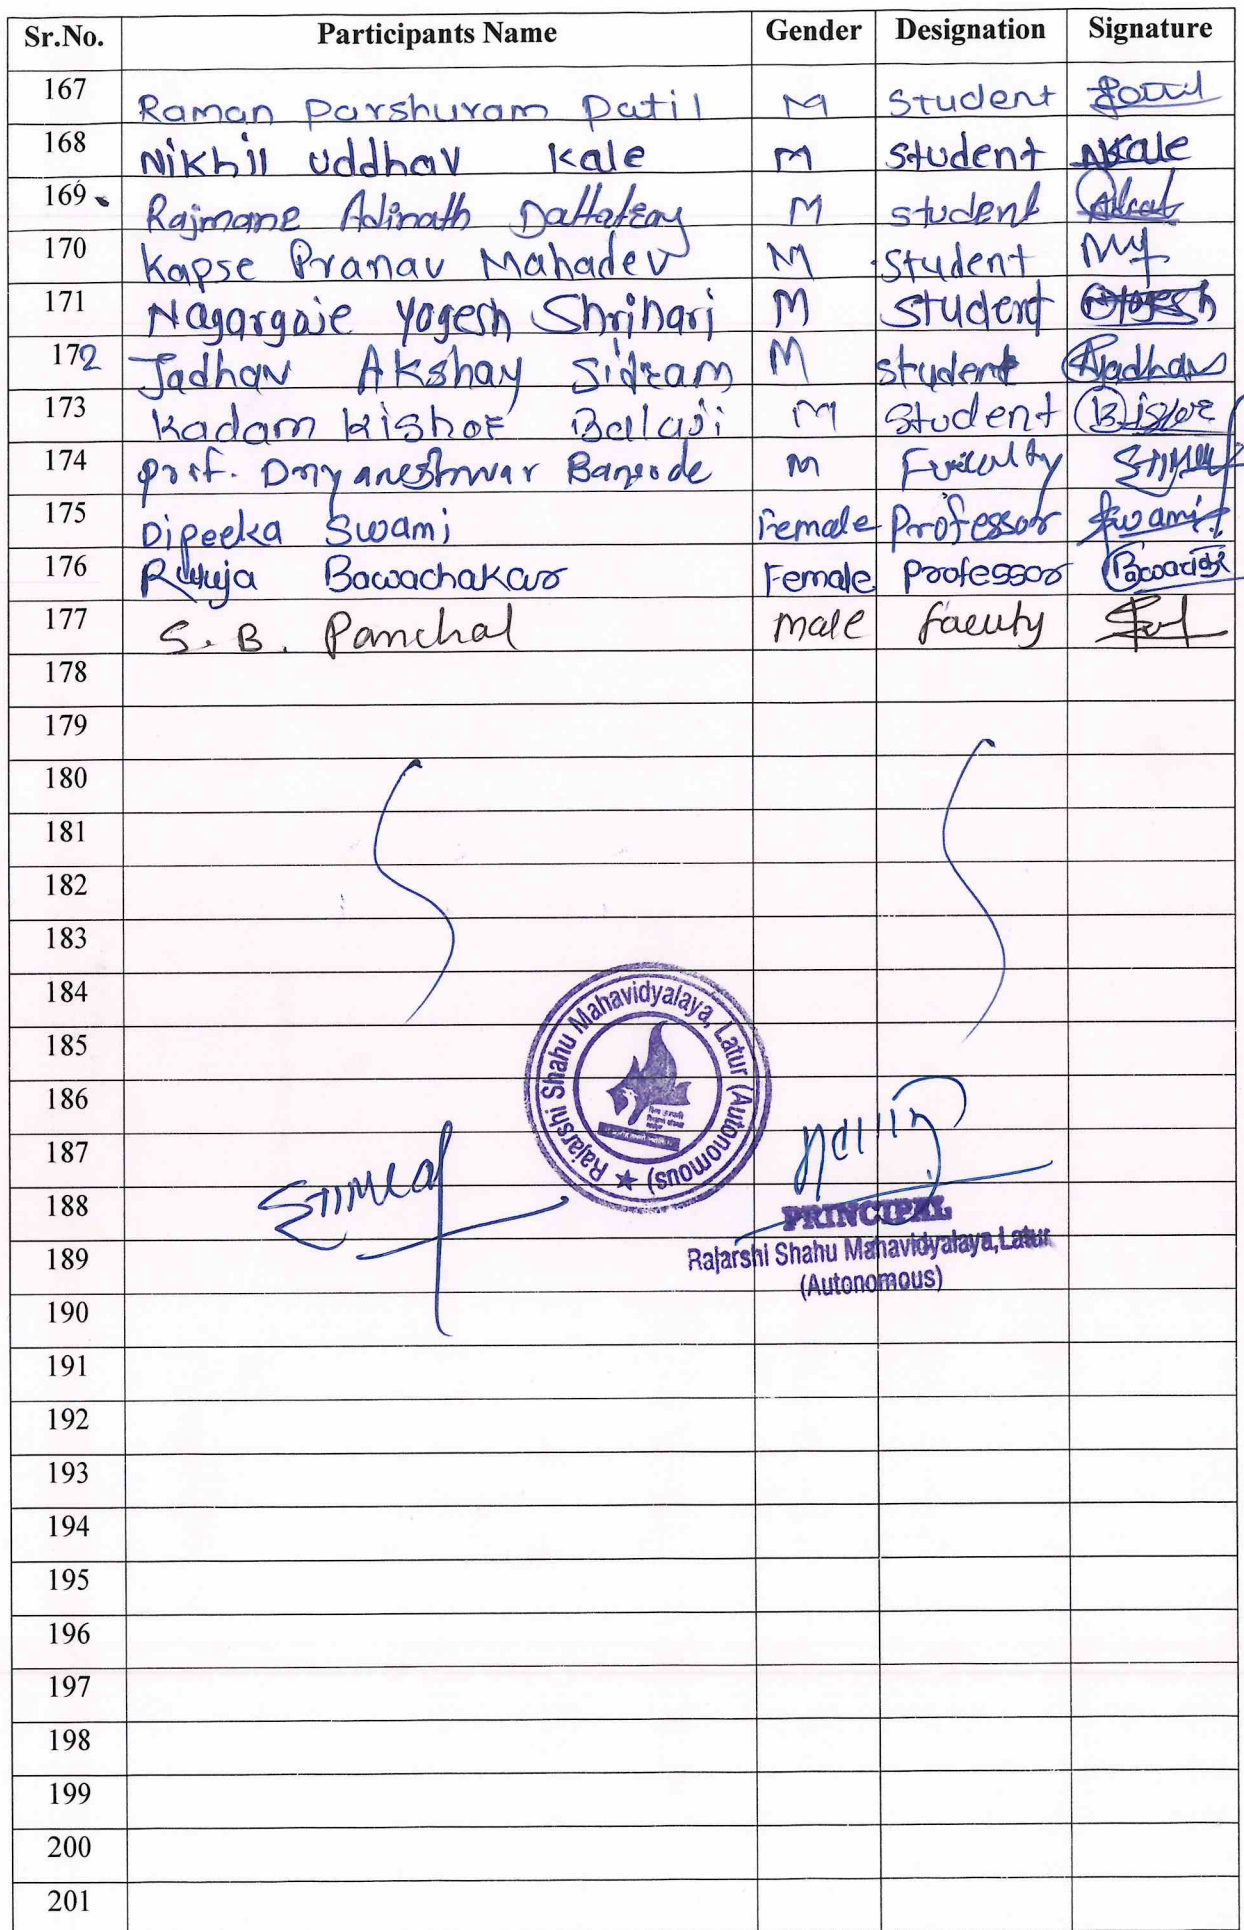 Sr.No. Participants Name Gender Designation Signature
167 Raman Parshuram Patil M Student
168 Nikhil Uddhav Kale M Student NKale
169 Rajmane Adinath Dattatray M Student
170 Kapse Pranav Mahadev M Student
171 Nagargoje Yogesh Shrihari M Student
172 Jadhav Akshay Sidram M student AJadhav
173 Kadam Kishor Balaji M Student
174 Prof. Dnyaneshwar Bansode M Faculty
175 Dipeeka Swami Female Professor Swami
176 Rutuja Bawachakar Female Professor
177 S. B. Panchal male faculty
178
179
180
181
182
183
184
185
186
187
188
189
190
191
192
193
194
195
196
197
198
199
200
201
Rajarshi Shahu Mahavidyalaya, Latur (Autonomous)
PRINCIPAL
Rajarshi Shahu Mahavidyalaya,Latur
(Autonomous)